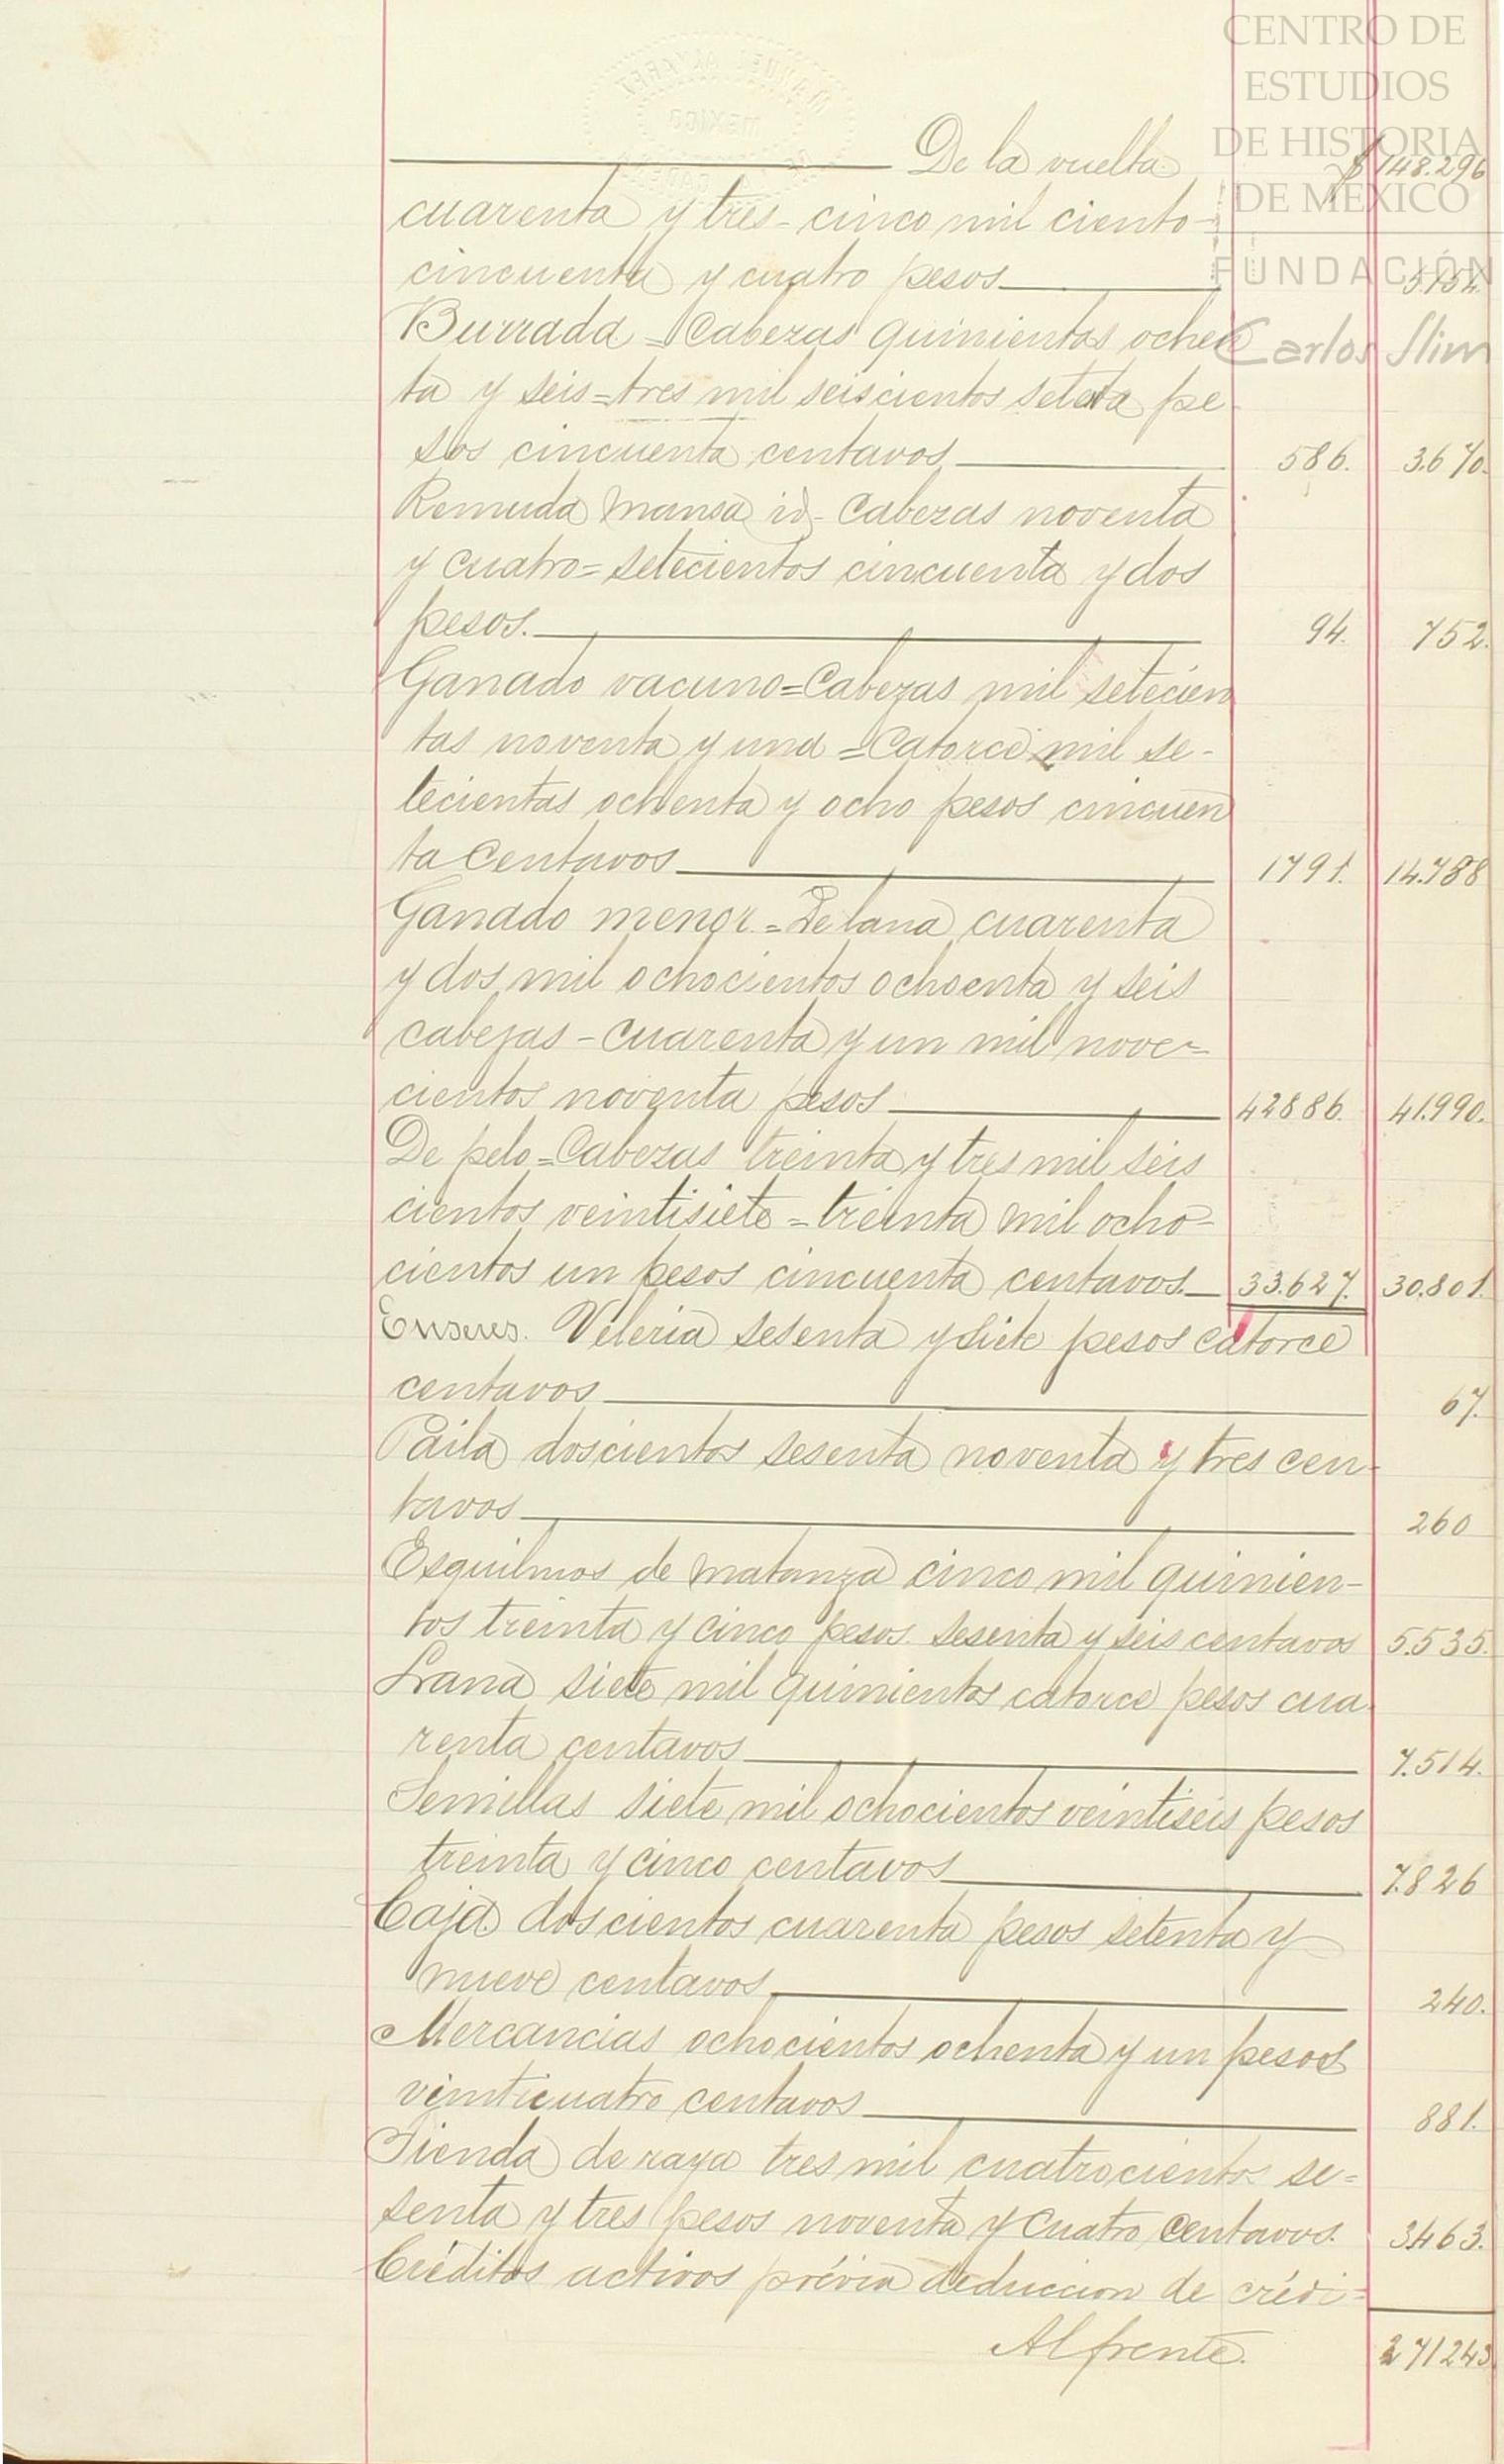 CENTRO DE
ESTUDIOS
DE HISTORIA
DE MÉXICO
FUNDACIÓN
Carlos Slim
MEXICO
De la vuelta $148.296
cuarenta y tres - cinco mil ciento
cincuenta y cuatro pesos 5.154.
Burrada = Cabezas quinientas ochen
ta y seis = tres mil seiscientos seteta pe
sos cincuenta centavos 586. 3.670.
Remuda mansa id - Cabezas noventa
y cuatro = setecientos cincuenta y dos
pesos. 94. 752.
Ganado vacuno = Cabezas mil setecien
tas noventa y una = Catorce mil se-
tecientas ochenta y ocho pesos cincuen
ta centavos 1791. 14.788
Ganado menor = De lana cuarenta
y dos mil ochocientos ochoenta y seis
cabezas - cuarenta y un mil nove=
cientos noventa pesos 42886. 41.990.
De pelo = Cabezas treinta y tres mil seis
cientos veintisiete = treinta mil ocho-
cientos un pesos cincuenta centavos. 33.627. 30.801.
Enseres. Veleria sesenta y siete pesos catorce
centavos 67.
Paila doscientos sesenta noventa y tres cen-
tavos 260
Esquilmos de matanza cinco mil quinien-
tos treinta y cinco pesos sesenta y seis centavos 5.535.
Lana siete mil quinientos catorce pesos cua
renta centavos 7.514.
Semillas siete mil ochocientos veintiseis pesos
treinta y cinco centavos 7.826
Caja doscientos cuarenta pesos setenta y
nueve centavos 240.
Mercancias ochocientos ochenta y un pesos
veinticuatro centavos 881.
Tienda de raya tres mil cuatrocientos se=
senta y tres pesos noventa y cuatro centavos. 3.463.
Créditos activos prévia deduccion de crédi=
Al frente. 271243